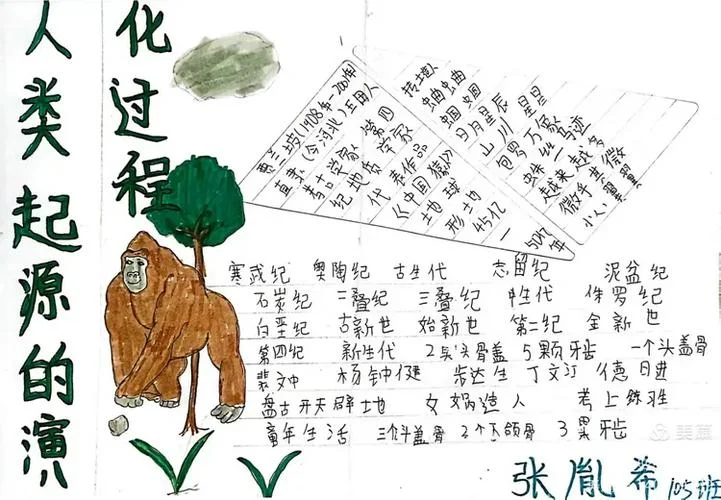 人类起源的演
化过程
贾兰坡(1908年-2001年)
直隶(今河北)玉田人
考古学家 第四
纪地质学家
代表作品
《中国猿人》
地球
形地
45亿—50亿年
蛐蛐
蝈蝈
日月星辰
山川星星
包罗万象
蛛丝马迹
越来越多
微乎其微
小人 翼翼
寒武纪 奥陶纪 古生代 志留纪 泥盆纪
石炭纪 二叠纪 三叠纪 中生代 侏罗纪
白垩纪 古新世 始新世 第三纪 全新世
第四纪 新生代 2块头骨盖 5颗牙齿 一个头盖骨
裴文中 杨钟健 步达生 丁文江 德日进
盘古开天辟土地 女娲造人
童年生活 三个头盖骨 2个下颌骨 3颗牙齿
张胤希 105班
美篇